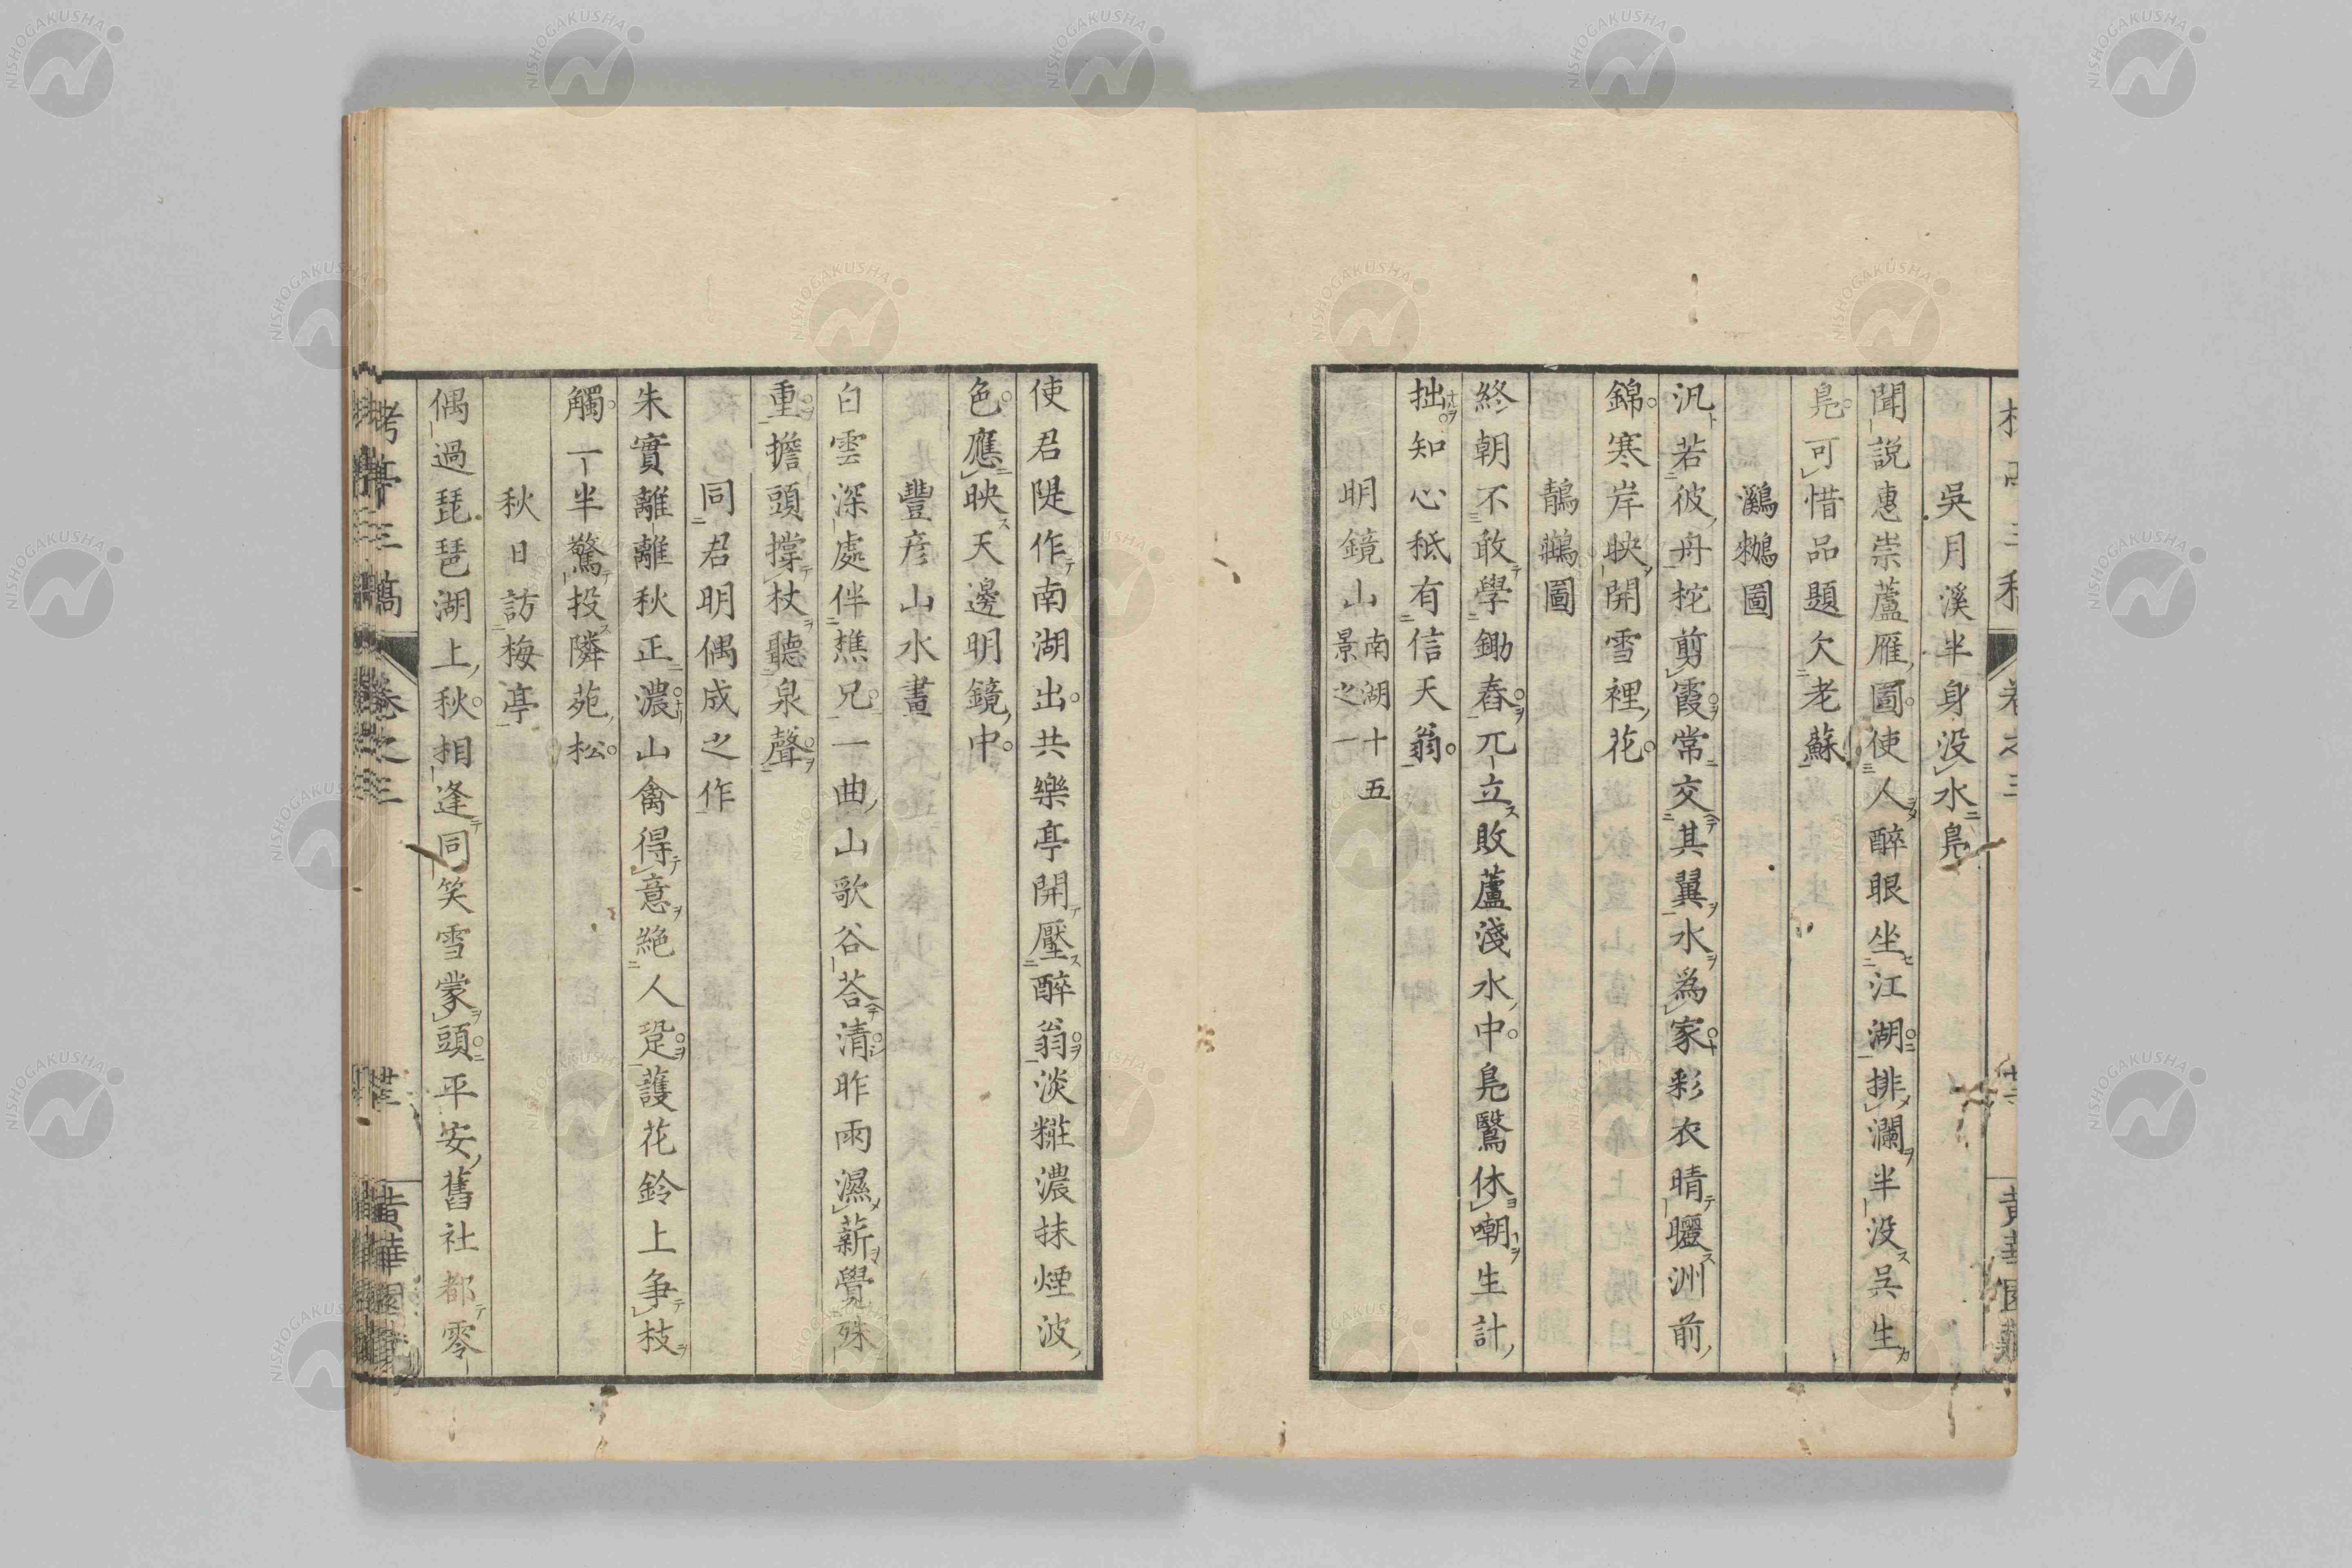 吳月溪半身没水鳧
聞説惠崇蘆雁圖使人醉眼坐江湖排瀾半没吳生
鳧可惜品題欠老蘇
鸂鶒圖
汎若彼舟拕剪霞常交其翼水為家彩衣晴曬洲前
錦寒岸映開雪裡花
鶄鶄圖
終朝不敢學鋤舂兀立敗蘆淺水中鳧鷖休嘲生計
拙知心秪有信天翁
明鏡山南湖十五景之一
使君隄作南湖出共樂亭開壓醉翁淡糚濃抹煙波
色應映天邊明鏡中
豐彦山水畫
白雲深處伴樵兄一曲山歌谷荅清昨雨濕薪覺殊
重擔頭撑杖聽泉聲
同君明偶成之作
朱實離離秋正濃山禽得意絶人跫護花鈴上争枝
觸一半驚投隣苑松
秋日訪梅亭
偶過琵琶湖上秋相逢同笑雪蒙頭平安舊社都零
亭三稿 卷之三
黄華園
NISHOGAKUSHA